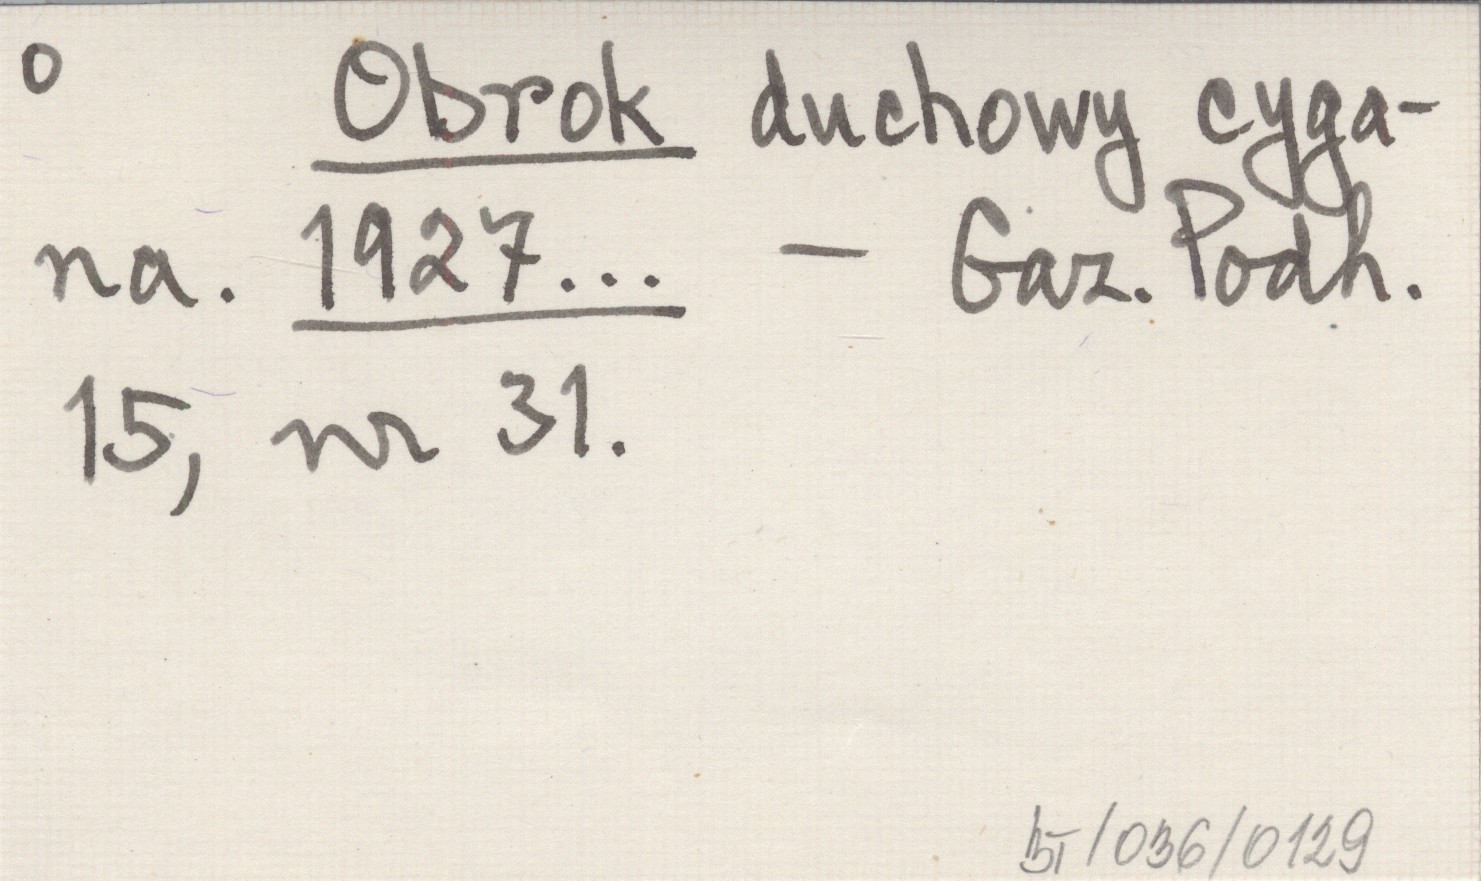 o Obrok duchowy cyga-
na. 1927... — Gaz. Podh.
15, nr 31.
/036/0129